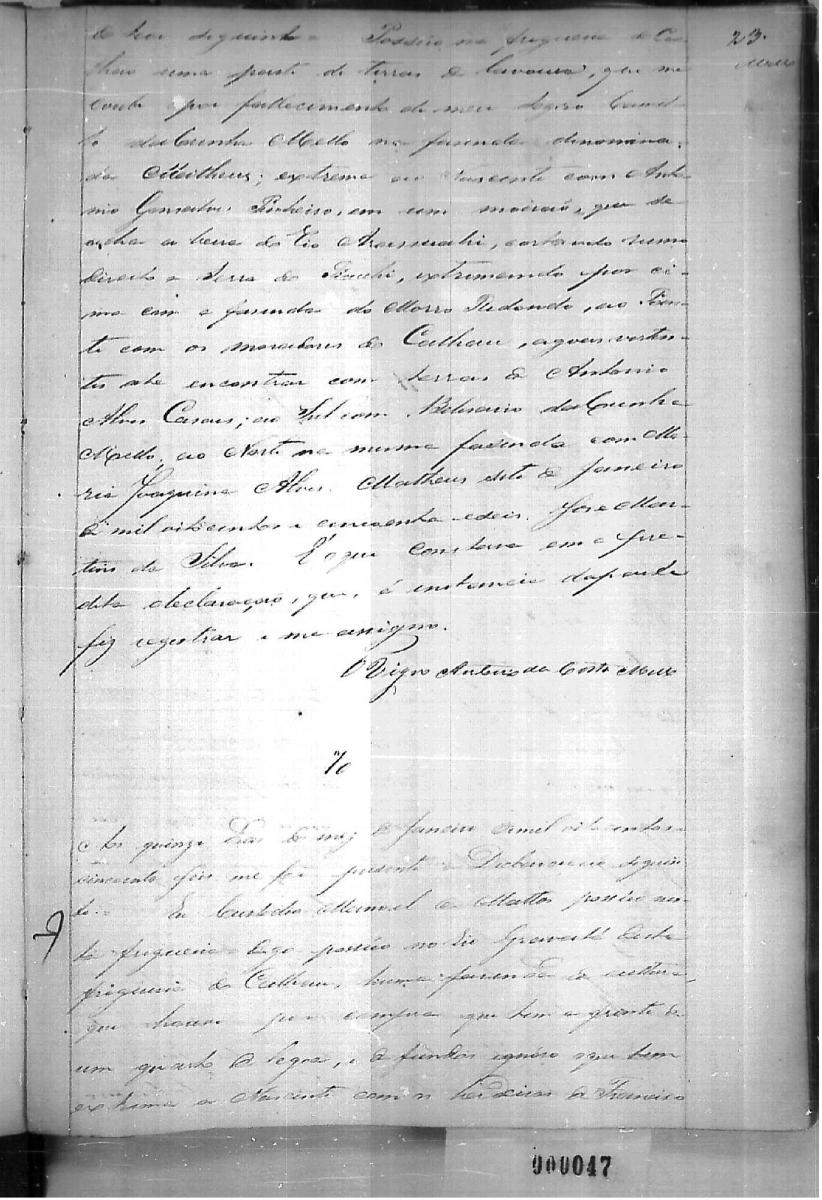 de teor seguinte. Possuio na freguezia do Ca-
lhau uma parte de terras de lavoura, que me
coube por fallecimento de meu sogro Camil-
lo da Cunha Mello na fazenda denomina-
da Matheus; extrema ao Nascente com Anto-
nio Gonsalves Pinheiro, em um moirão, que se
acha a beira do Rio Arassuahi, cortando rumo
direito a Serra do Piauhi, extremando por ci-
ma com a fazenda do Morro Redondo, ao Poen-
te com os moradores do Calhau, agoas verten-
tes até encontrar com terras de Antonio
Alves ; ao Sul com Belisario da Cunha
Mello, ao Norte na mesma fazenda com Ma-
ria Joaquina Alves. Matheus de Janeiro
de mil oitocentos e cincoenta e seis. Jose Mar-
tins da Silva. É o que constava em a pre-
dita declaração, que, á instancia da parte
fiz registrar e me assigno.
O Vigro Antonio da Costa
23.
Aos quinze dias do mez de Janeiro de mil oito centos e
cincoenta e seis me foi presente a Declaração seguin-
te: Eu Custodio Manoel de Mattos possuio nes-
ta freguezia digo possuio no Rio Gravatá desta
freguezia do Calhau, huma fazenda de cultura,
que houve por compra que tem a frente de
um quarto de legoa, e de fundos que tem
extrema ao Nascente com os herdeiros de Francisco
000047